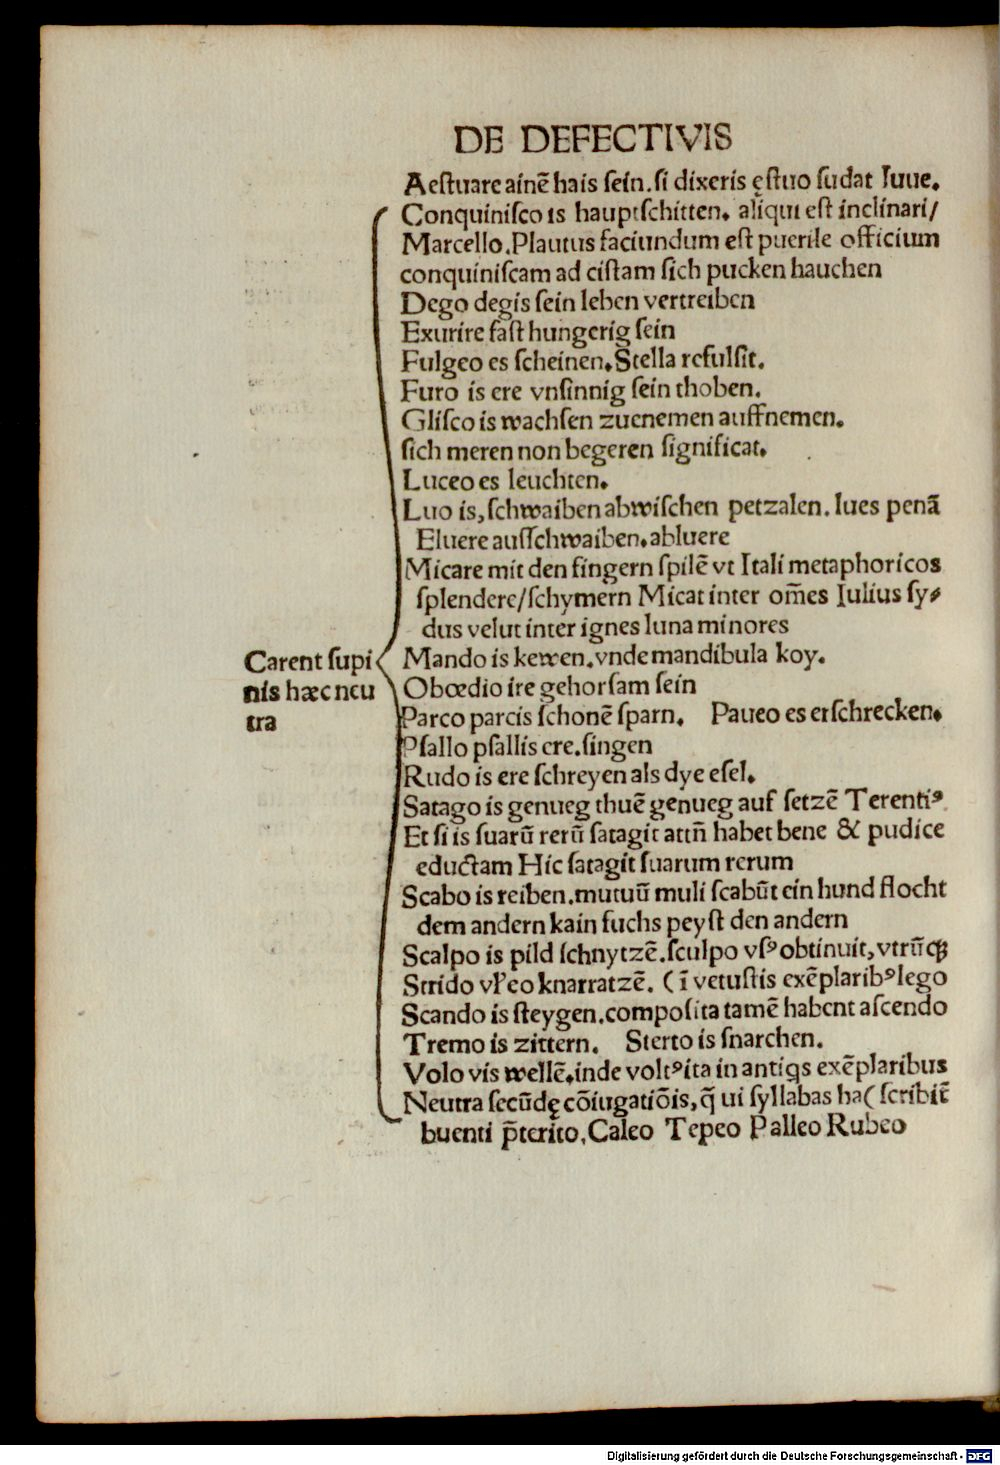 DE DEFECTIVIS
Aeſtuare ainē hais ſein. ſi dixeris ęſtuo ſudat Iuue.
Conquiniſco is hauptſchitten. aliqui eſt inclinari/
Marcello. Plautus faciundum eſt puerile officium
conquiniſcam ad ciſtam ſich pucken hauchen
Dego degis ſein leben vertreiben
Exurire faſt hungerig ſein
Fulgeo es ſcheinen. Stella refulſit.
Furo is ere vnſinnig ſein thoben.
Gliſco is wachſen zuenemen auffnemen.
ſich meren non begeren ſignificat.
Luceo es leuchten.
Luo is, ſchwaiben abwiſchen petzalen. lues penā
Eluere auſſchwaiben. abluere
Micare mit den fingern ſpilē vt Itali metaphoricos
ſplendere/ſchymern Micat inter om̄es Iulius ſy⸗
dus velut inter ignes luna minores
Carent ſupi
nis hæc neu
tra
Mando is kewen. vnde mandibula koy.
Obœdio ire gehorſam ſein
Parco parcis ſchonē ſparn. Paueo es erſchrecken.
Pſallo pſallis ere. ſingen
Rudo is ere ſchreyen als dye eſel.
Satago is genueg thuē genueg auf ſetzē Terentiꝰ
Et ſi is ſuarū rerū ſatagit attn̄ habet bene & pudice
eductam Hic ſatagit ſuarum rerum
Scabo is reiben. mutuū muli ſcabūt ein hund flocht
dem andern kain fuchs peyſt den andern
Scalpo is pild ſchnytzē. ſculpo vſꝰ obtinuit, vtrūqꝫ
Strido vl̕ eo knarratzē. (ī vetuſtis exēplaribꝰ lego
Scando is ſteygen. compoſita tamē habent aſcendo
Tremo is zittern. Sterto is ſnarchen.
Volo vis wellē. inde voltꝰ ita in antiqs exēplaribus
Neutra ſecūdę cōiugatiōis, q̄ ui ſyllabas ha( ſcribit̄
buenti p̄terito, Caleo Tepeo Palleo Rubeo
Digitalisierung gefördert durch die Deutsche Forschungsgemeinschaft - DFG